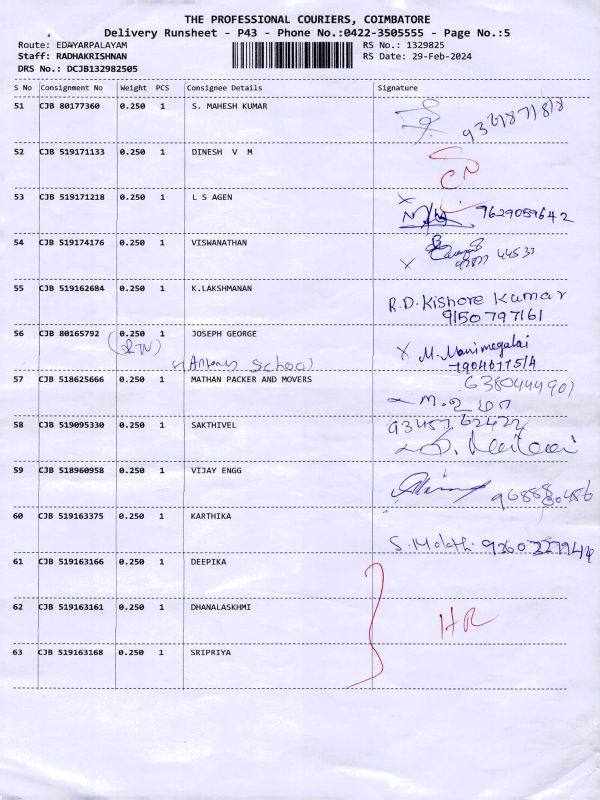 THE PROFESSIONAL COURIERS, COIMBATORE
Delivery Runsheet - P43 - Phone No.:0422-3505555 - Page No.:5
Route: EDAYARPALAYAM RS No.: 1329825
Staff: RADHAKRISHNAN RS Date: 29-Feb-2024
DRS No.: DCJB132982505
S No Consignment No Weight PCS Consignee Details Signature
51 CJB 80177360 0.250 1 S. MAHESH KUMAR
52 CJB 519171133 0.250 1 DINESH V M
53 CJB 519171218 0.250 1 L S AGEN
9629089642
54 CJB 519174176 0.250 1 VISWANATHAN
55 CJB 519162684 0.250 1 K.LAKSHMANAN
R.D. Kishore Kumar
9150797161
56 CJB 80165792 0.250 1 JOSEPH GEORGE
X M. Manimegalai
School
57 CJB 518625666 0.250 1 MATHAN PACKER AND MOVERS
6380444901
58 CJB 519095330 0.250 1 SAKTHIVEL
9345762422
59 CJB 518960958 0.250 1 VIJAY ENGG
60 CJB 519163375 0.250 1 KARTHIKA
S. Malathi 9360227944
61 CJB 519163166 0.250 1 DEEPIKA
62 CJB 519163161 0.250 1 DHANALASKHMI
HR
63 CJB 519163168 0.250 1 SRIPRIYA